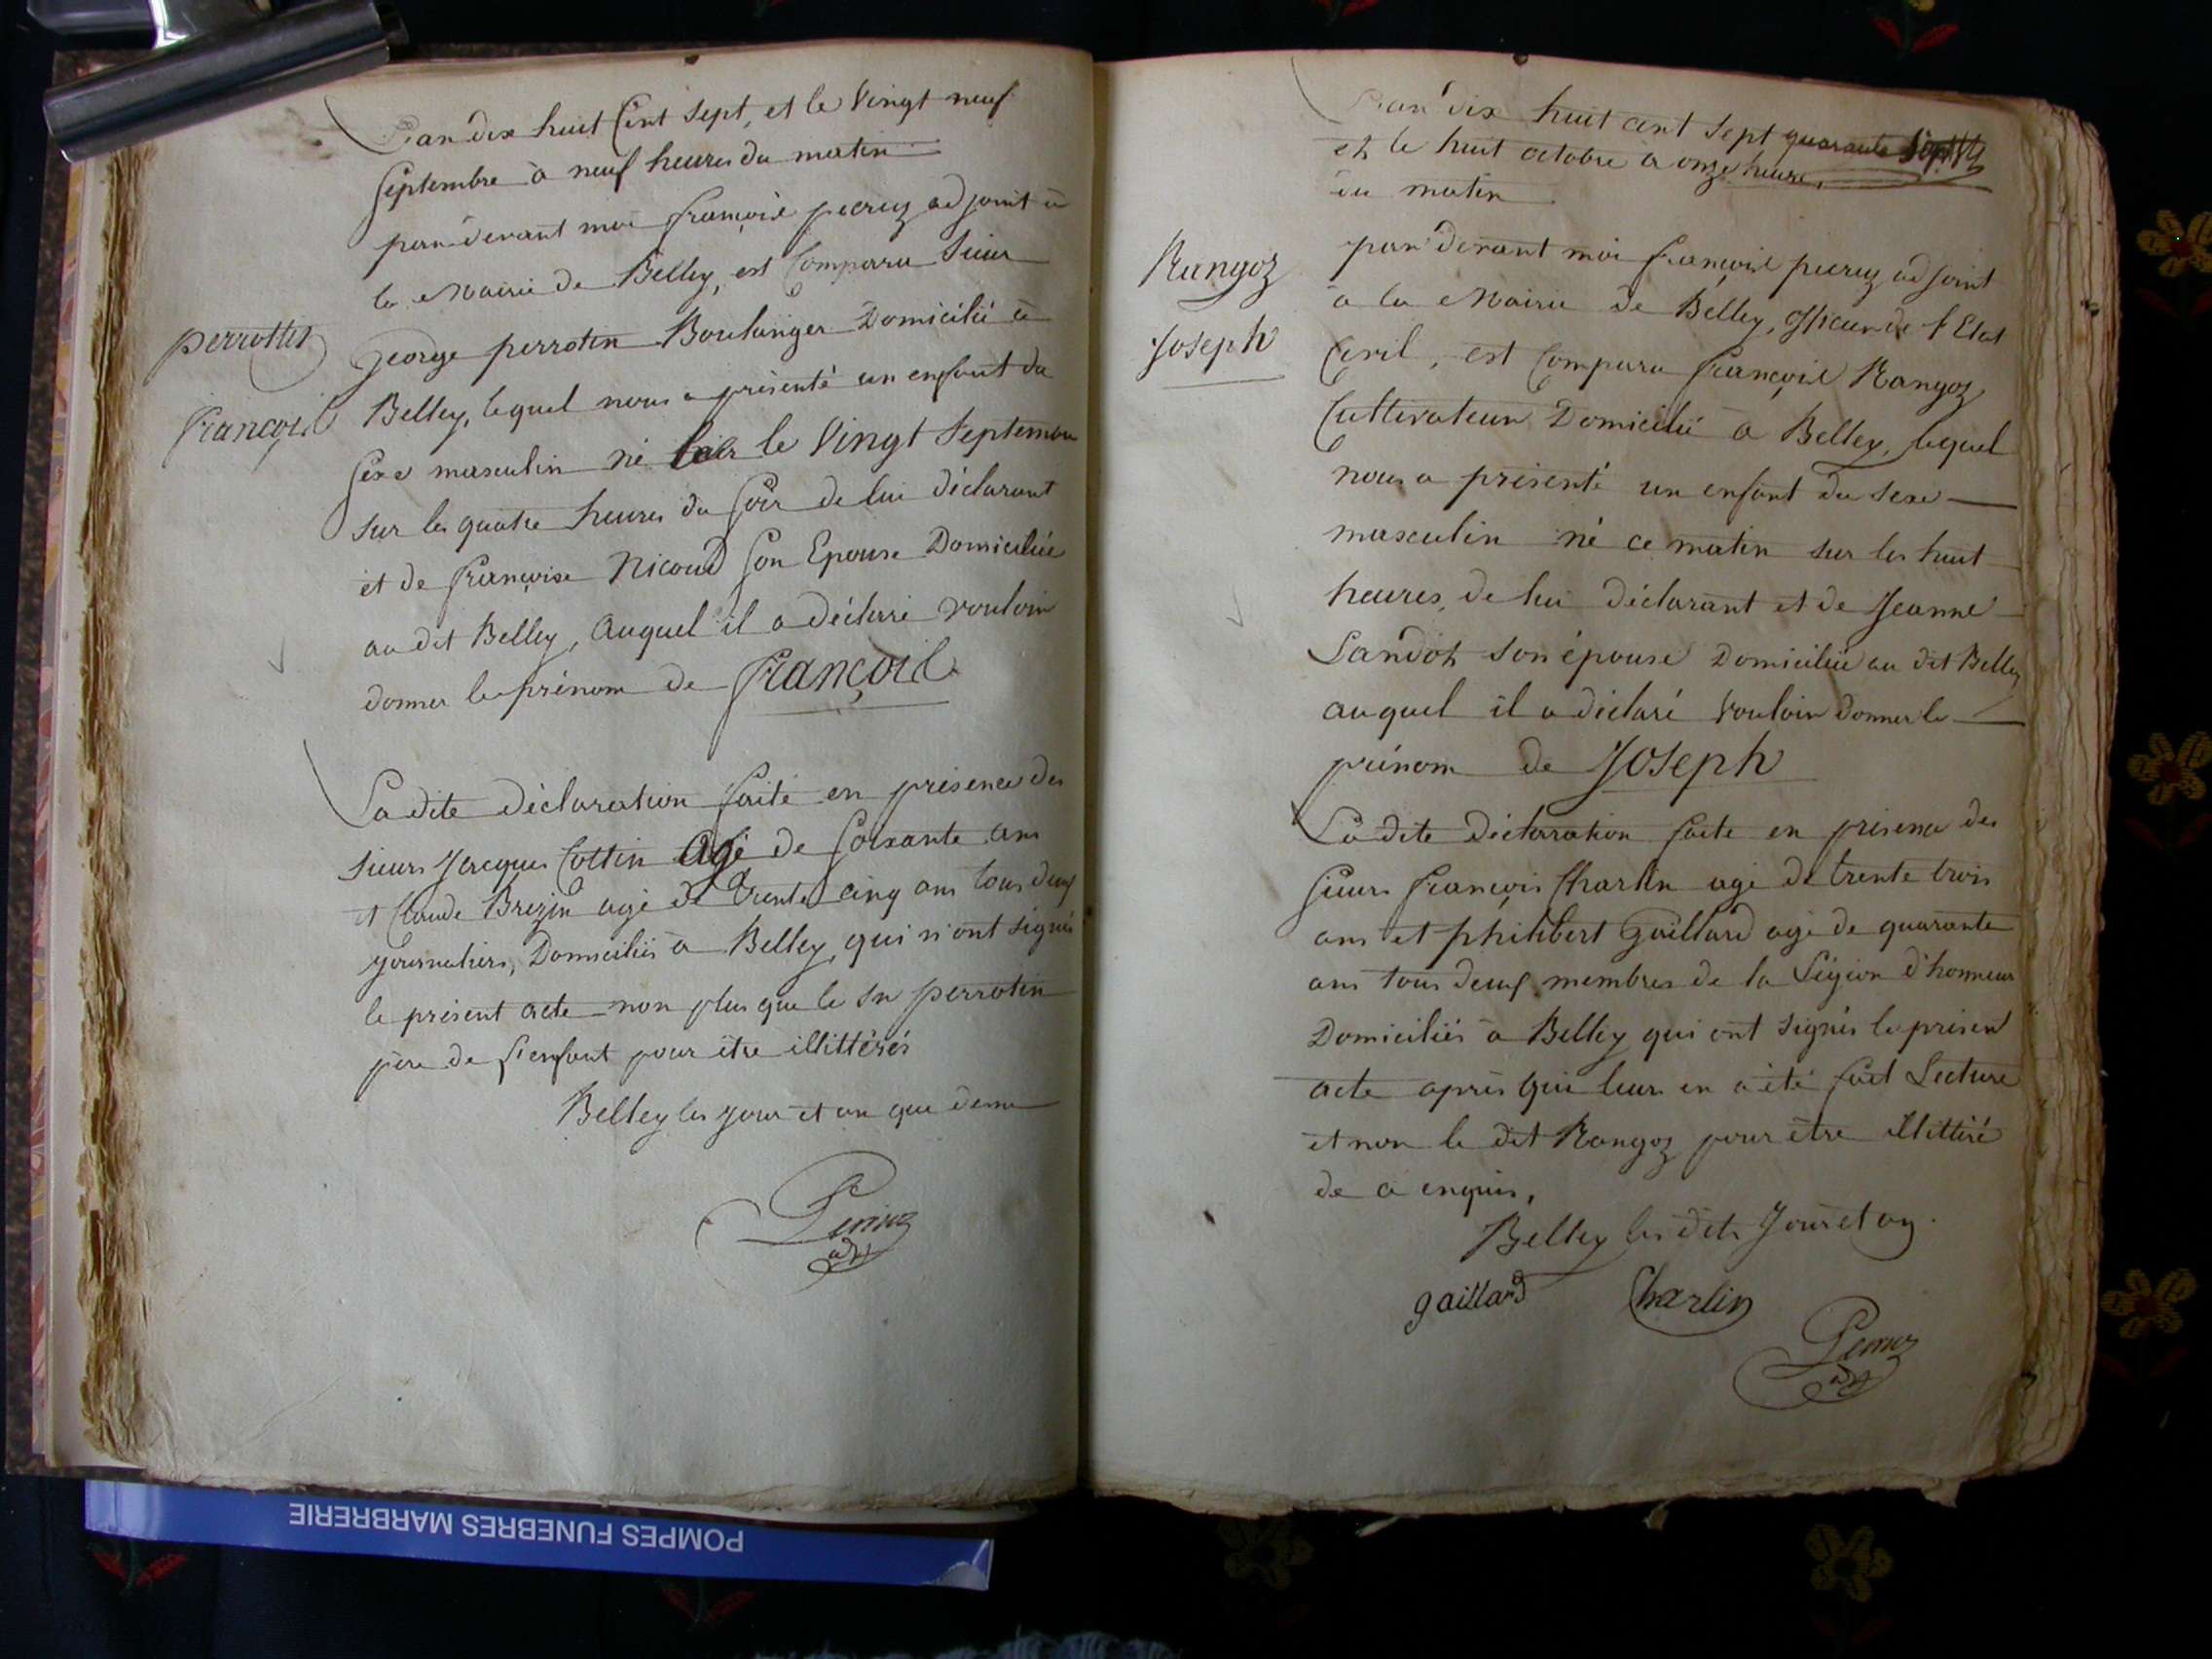 L'an dix huit Cent Sept, et le Vingt neuf
Septembre à neuf heures du matin
par devant moi françois perruz adjoint à
la Mairie de Belley, est Comparu Sieur
perrottin
George perrotin Boulanger Domicilié à
françois
Belley, lequel nous a présenté un enfant du
Sexe masculin né le Vingt Septembre
sur les quatre heures du Soir de lui déclarant
et de françoise Nicoud Son Epouse Domiciliée
au dit Belley, Auquel il a déclaré vouloir
donner le prénom de François
La dite déclaration faite en présence des
sieurs Jacques Cottin Agé de Soixante ans
et Claude Brezin agé de trente cinq ans tous deux
journaliers, Domiciliés à Belley, qui n'ont signés
le présent acte non plus que le Sr perrotin
père de l'enfant pour être illittérés
Belley les jour et an que dessus
Perruz
adjt
L'an dix huit cent sept
et le huit octobre à onze heures
du matin
Rangoz
Joseph
par devant moi françois perruz adjoint
à la Mairie de Belley, officier de l'Etat
Civil, est Comparu françois Rangoz
Cultivateur Domicilié à Belley, lequel
nous a présenté un enfant du sexe
masculin né ce matin sur les huit
heures, de lui déclarant et de Jeanne
Landot son épouse Domiciliée au dit Belley
auquel il a déclaré Vouloir donner le
prénom de Joseph
La dite Déclaration faite en présence des
Sieurs françois Charlin agé de trente trois
ans et philibert Gaillard agé de quarante
ans tous deux membres de la Légion d'honneur
Domiciliés à Belley qui ont signés le présent
acte après que leur en a été fait Lecture
et non le dit Rangoz pour être illittéré
de ce enquis,
Belley les dits Jour et an.
gaillard Charlin
Perruz
adjt
POMPES FUNEBRES MARBRERIE